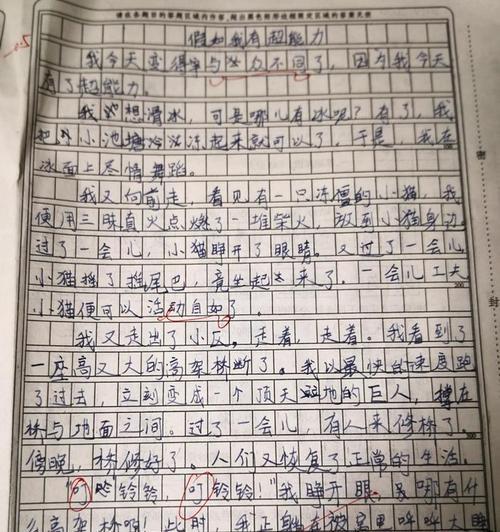 请在各题目的答题区域内作答,超出黑色矩形边框限定区域的答案无效
假如我有超能力
我今天变得与众不同了,因为我今天
有了超能力。
我想滑冰,可是哪儿有冰呢?有了,我
把小池塘冻起来就可以了。于是,我在
冰面上尽情舞蹈。
我又向前走,看见有一只冻僵的小猫,我
便用三昧真火点燃了一堆柴火,放到小猫身边。
过了一会儿,小猫睁开了眼睛。又过了一会儿,
小猫摇了摇尾巴,竟坐起来了。一会儿工夫
小猫便可以活动自如了。
我又走出了小区。走着,走着。我看到了
一座高又大的高架桥断了。我以最快的速度跑
了过去,立刻变成一个顶天立地的巨人,撑在
桥与地面之间。过了一会儿,有人来修桥了。
傍晚,桥修好了。人们又恢复了正常的生活。
"叮铃铃!叮铃铃!"我睁开眼,哪有什
么高架桥啊!此时,我正躺在被窝里呼呼大
200
封